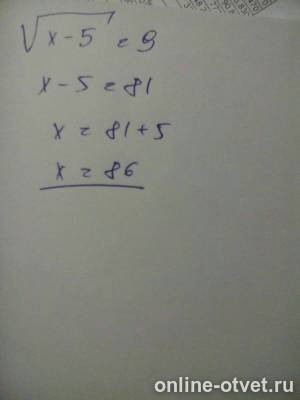 √x-5 = 9
x-5 = 81
x = 81+5
x = 86
online-otvet.ru